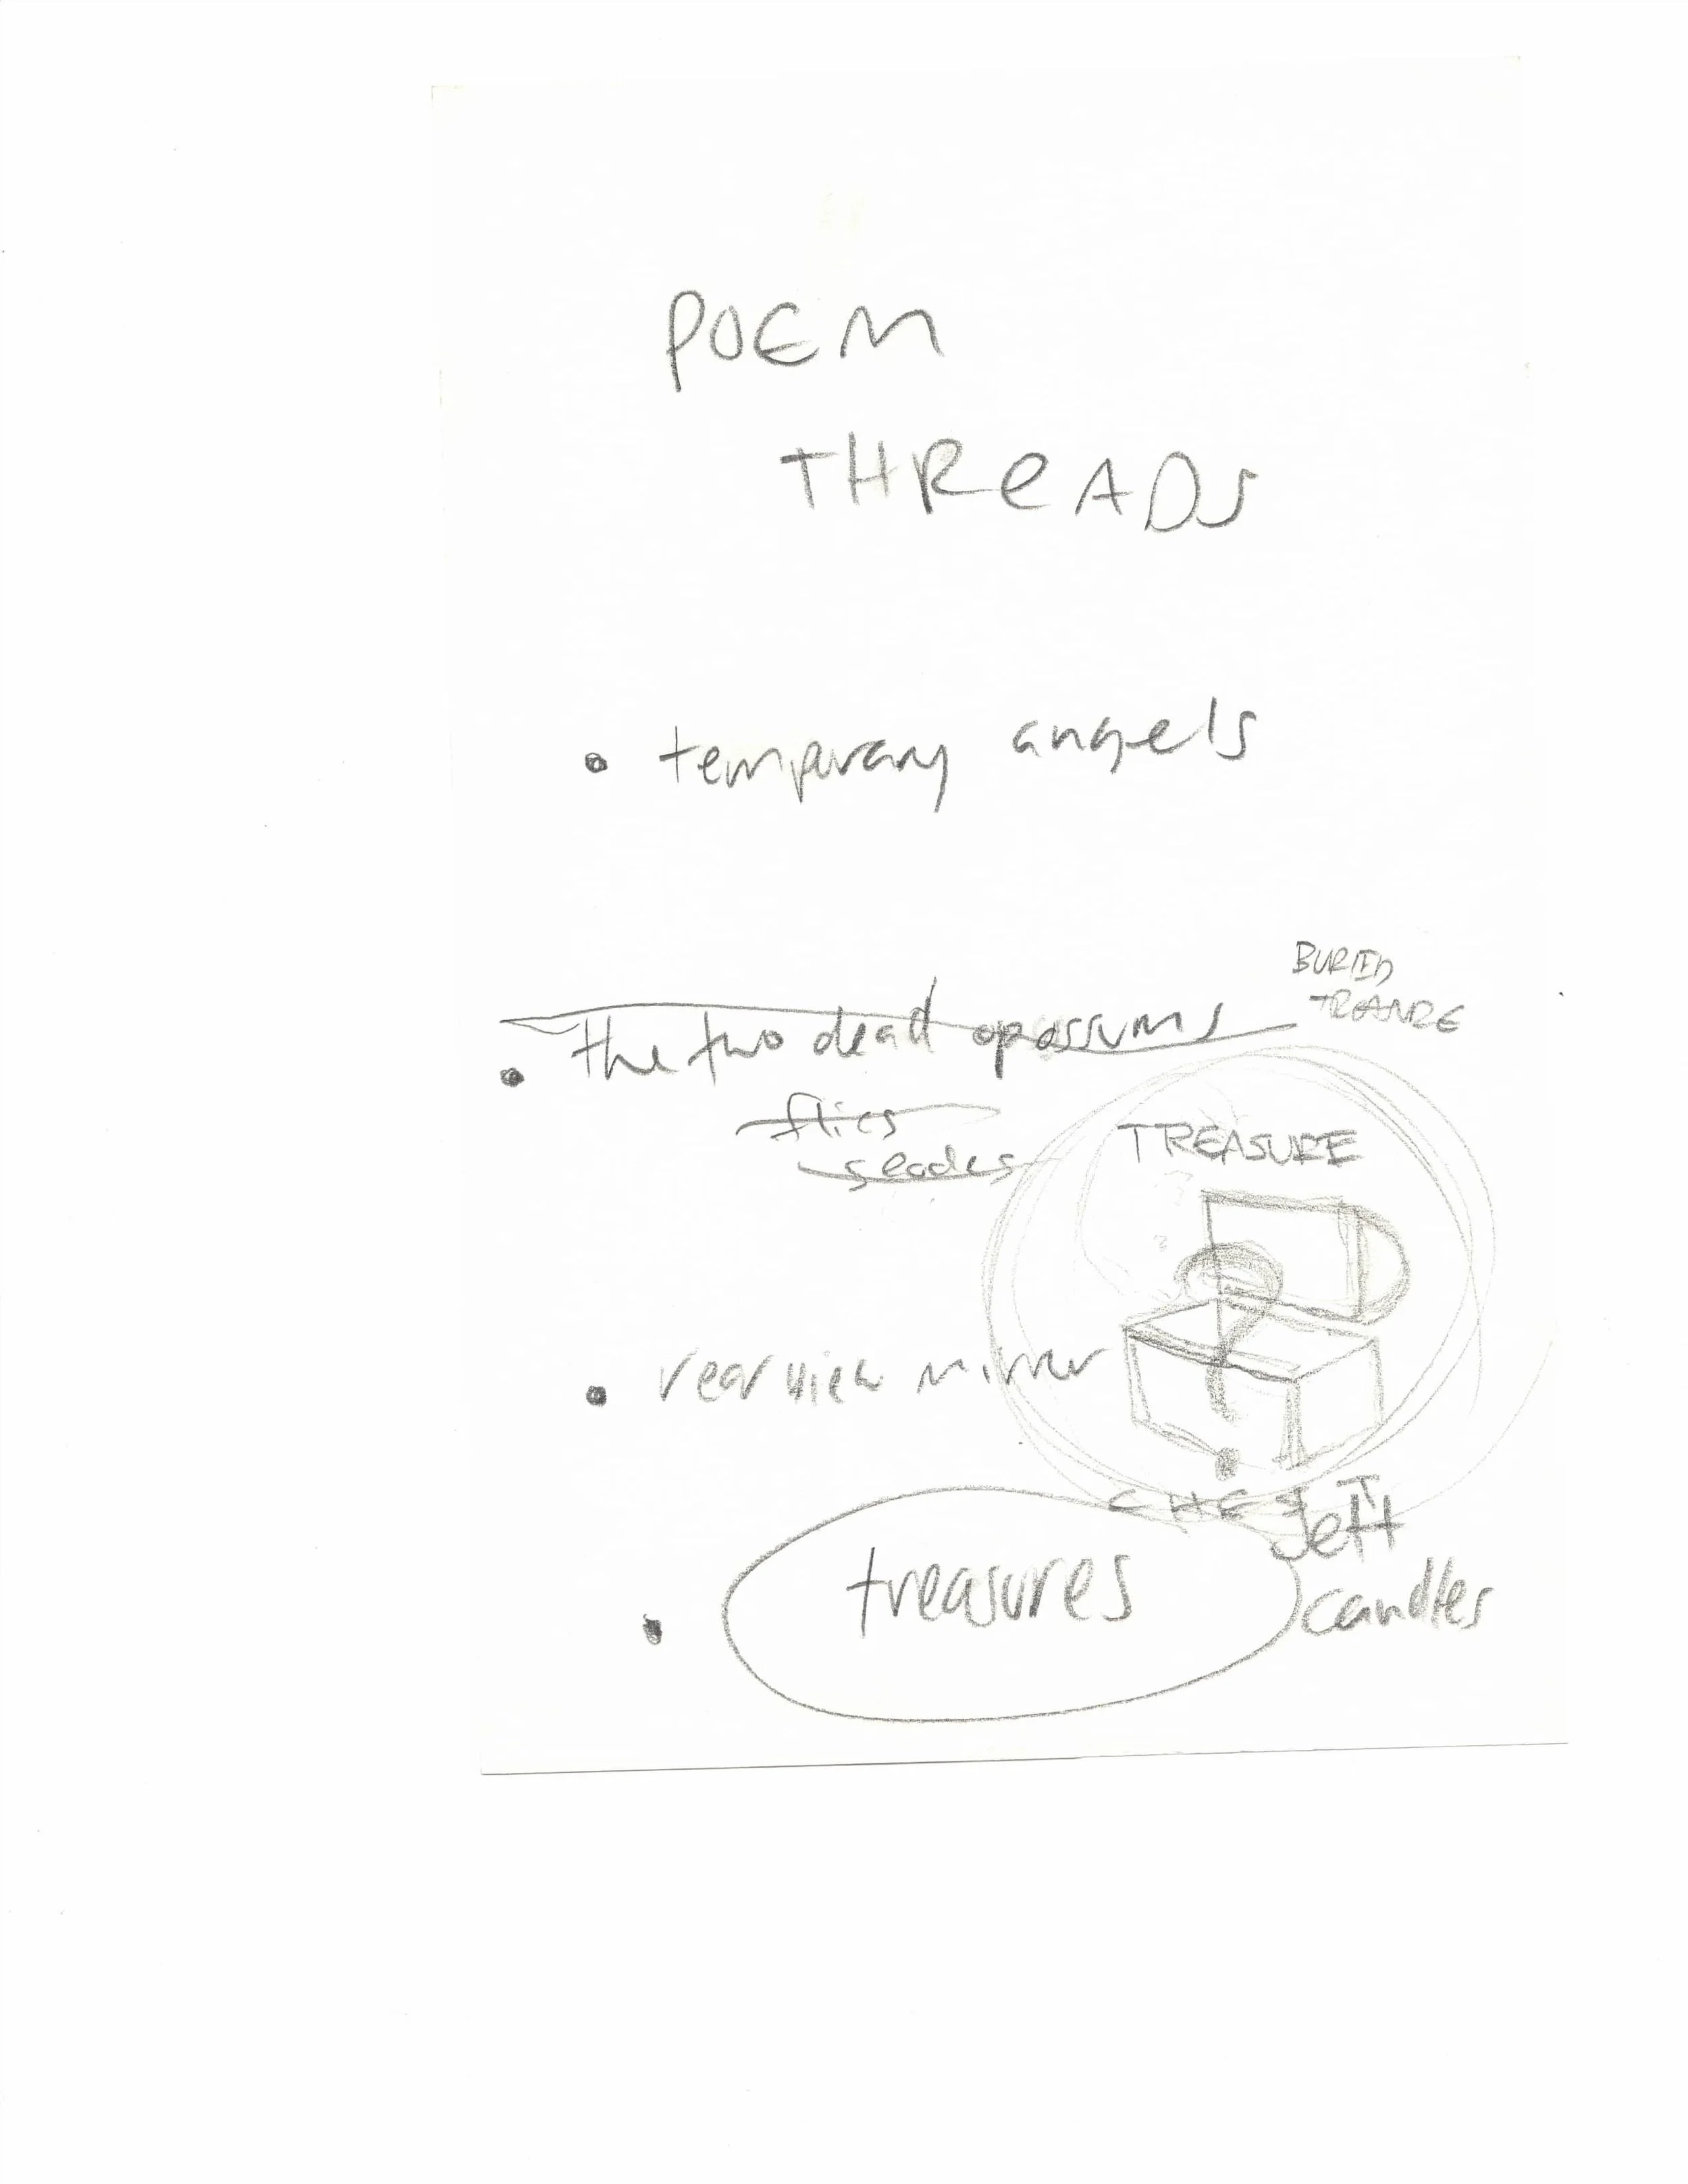 POEM
THREADS
• temporary angels
BURIED
• the two dead opossums
flies
TREASURE
• rear view mirror
CHEST
Jett
• treasures
candles